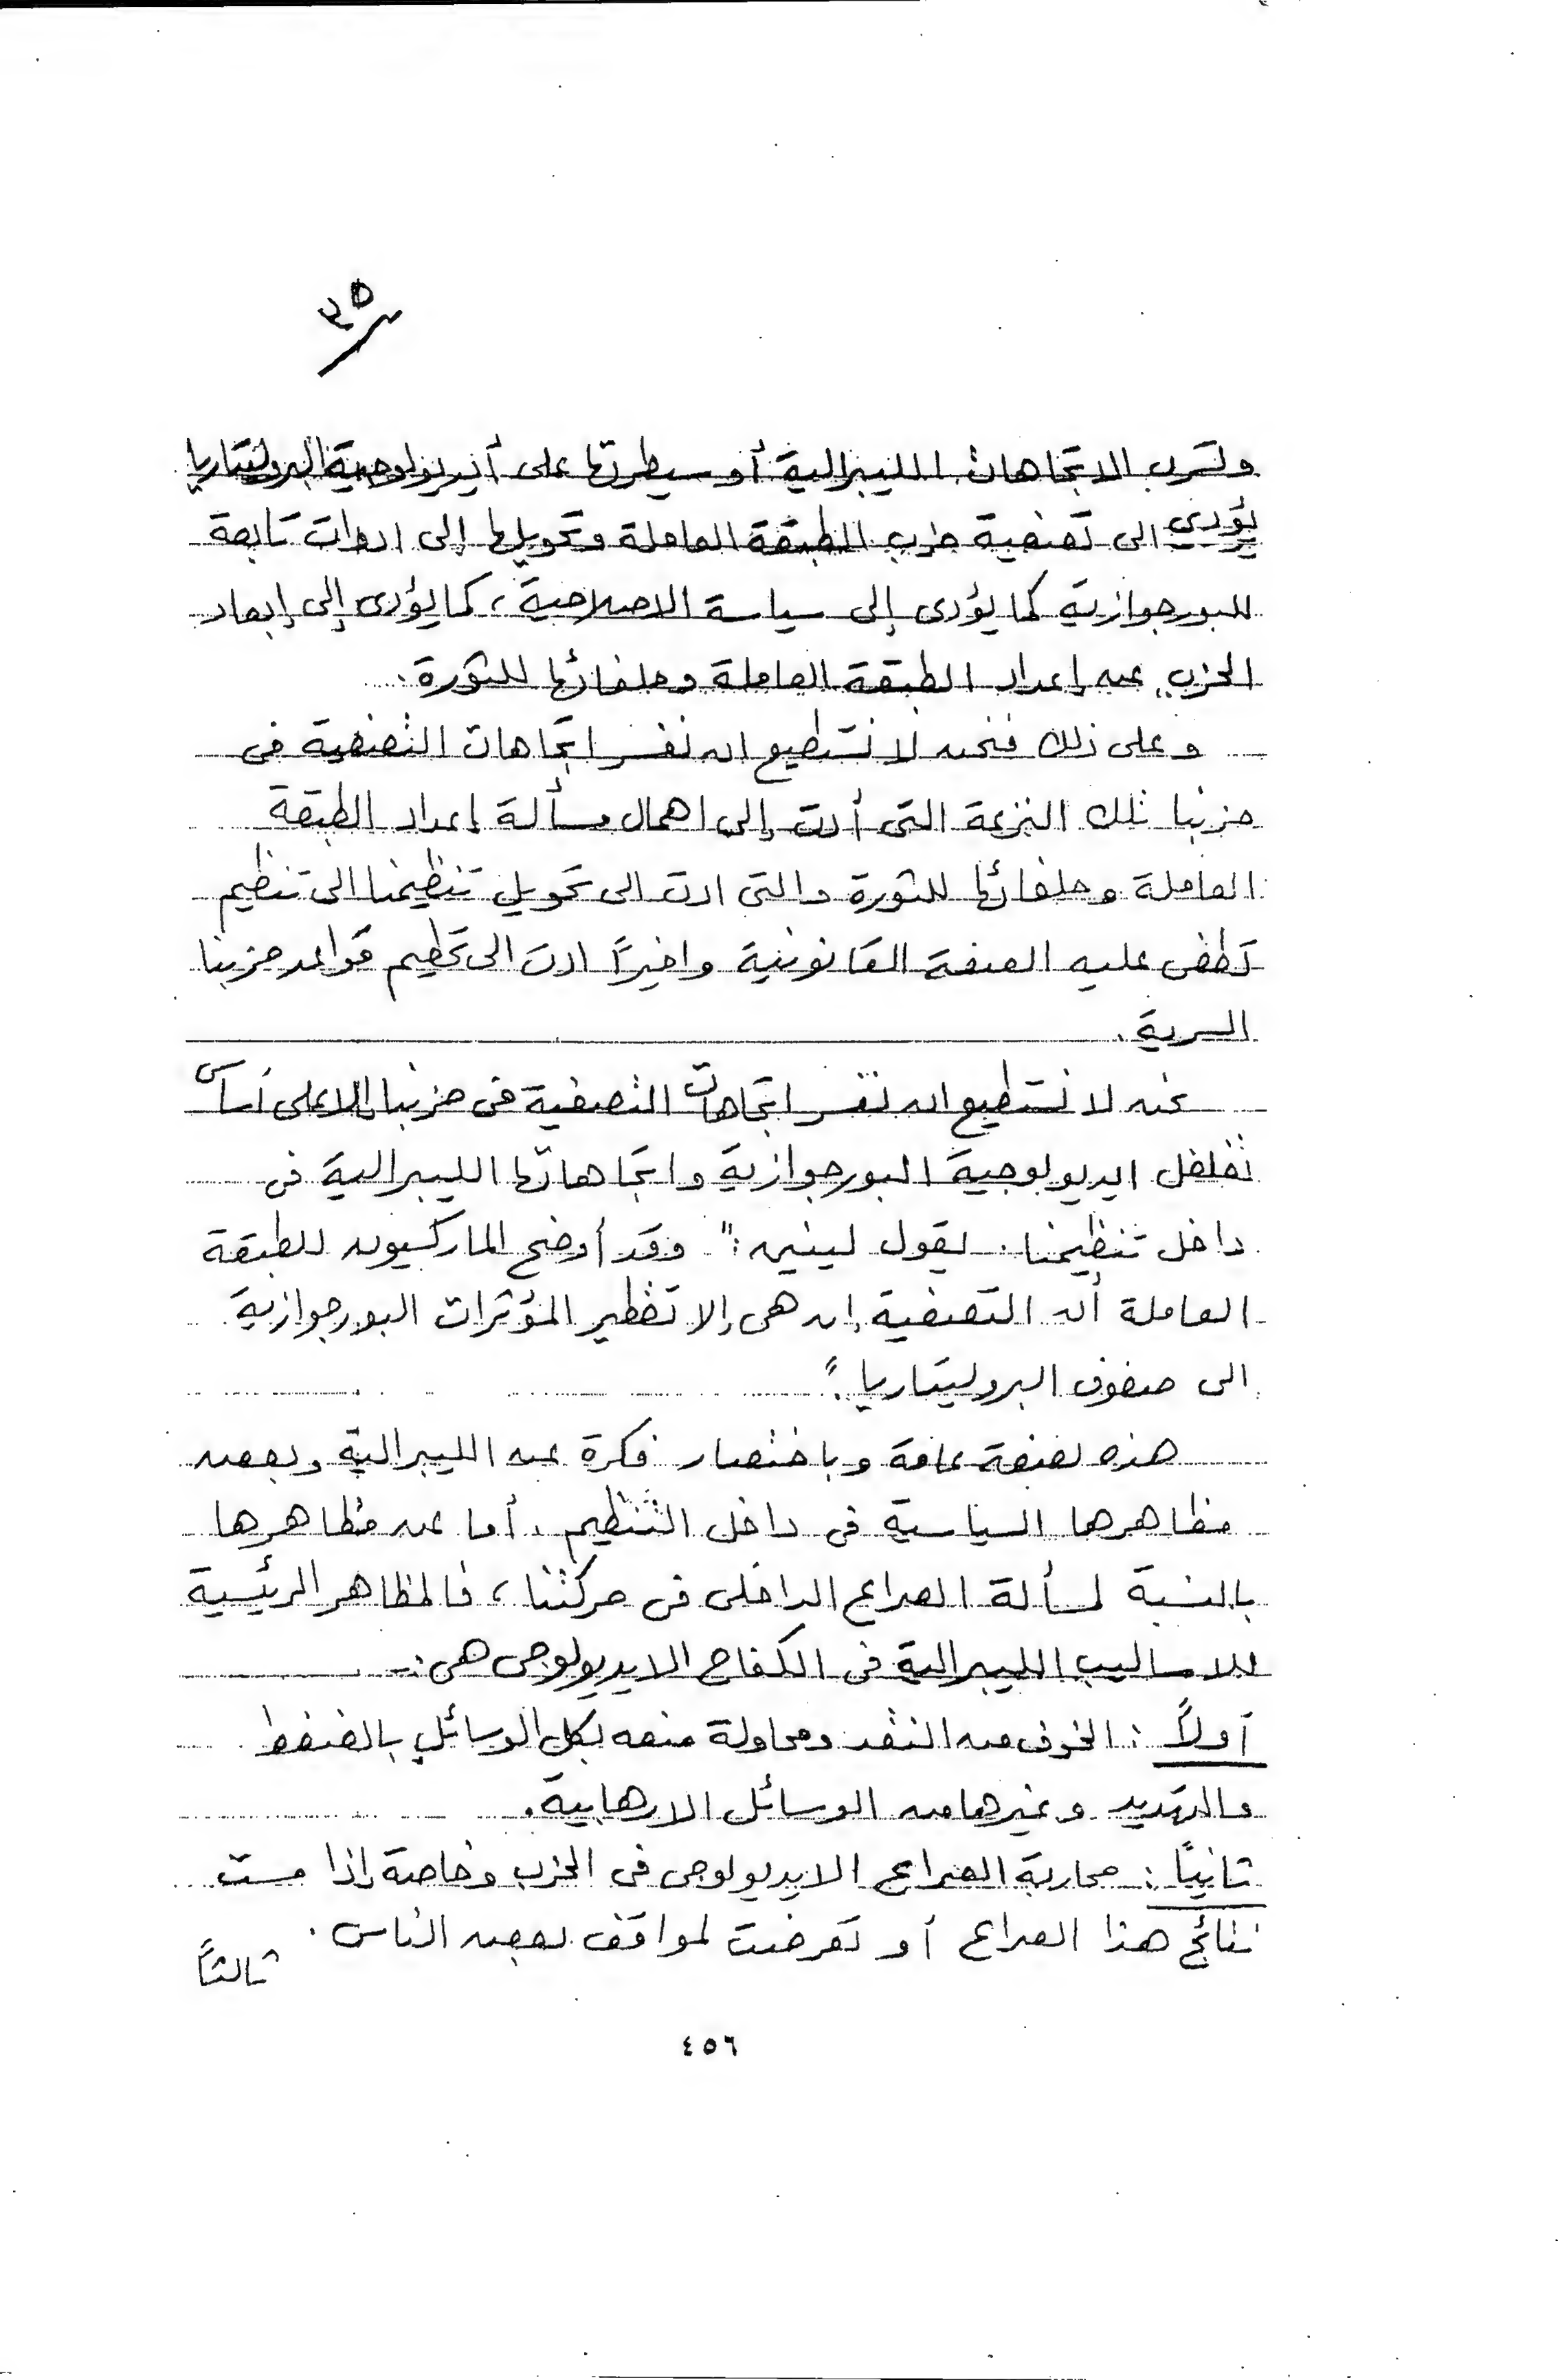 ٣٥
وتسرب الاتجاهات الليبرالية أو سيطرتها على أيديولوجية البروليتاريا
يؤدى الى تصفية حزب الطبقة العاملة وتحويلها إلى ادوات تابعة
للبورجوازية كما يؤدى إلى سياسة الاصلاحية، كما يؤدى إلى إبعاد
الحزب عن إعداد الطبقة العاملة وحلفائها للثورة.
وعلى ذلك فنحن لا نستطيع ان نفسر اتجاهات التصفية فى
حزبنا تلك النزعة التى أدت إلى اهمال مسألة إعداد الطبقة
العاملة وحلفائها للثورة والتى ادت الى تحويل تنظيمنا الى تنظيم
تطغى عليه الصفة القانونية واخيراً ادت الى تحطيم قواعد حزبنا
السرية.
نحن لا نستطيع ان نفسر اتجاهات التصفية فى حزبنا إلا على أساس
تغلغل ايديولوجية البورجوازية واتجاهاتها الليبرالية فى
داخل تنظيمنا. يقول لينين: " وقد أوضح الماركسيون للطبقة
العاملة أن التصفية إن هى إلا تقطير المؤثرات البورجوازية
الى صفوف البروليتاريا."
هذه بصفة عامة وباختصار فكرة عن الليبرالية وبعض
مظاهرها السياسية فى داخل التنظيم. أما عن مظاهرها
بالنسبة لمسألة الصراع الداخلى فى حركتنا، فالمظاهر الرئيسية
للاساليب الليبرالية فى الكفاح الايديولوجى هى:-
أولاً: الخوف من النقد ومحاولة منعه بكل الوسائل بالضغط
والتهديد وغيرها من الوسائل الارهابية.
ثانياً: محاربة الصراع الايديولوجى فى الحزب وخاصة إذا مست
نتائج هذا الصراع أو تعرضت لمواقف بعض الناس.
ثالثاً
٤٥٦